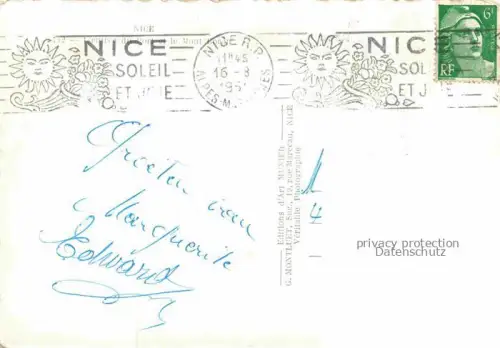 NICE
et le Mont
NICE
SOLEIL
ET JOIE
NICE R.P.
11H45
16-8
195
ALPES-MARITIMES
NICE
SOL
ET J
6F
RF
Groeten van
Marguerite
Edward
Editions d'Art MUNIER
G. MONTLUET, Suc., 19, rue Marceau, NICE
Véritable Photographie
privacy protection
Datenschutz